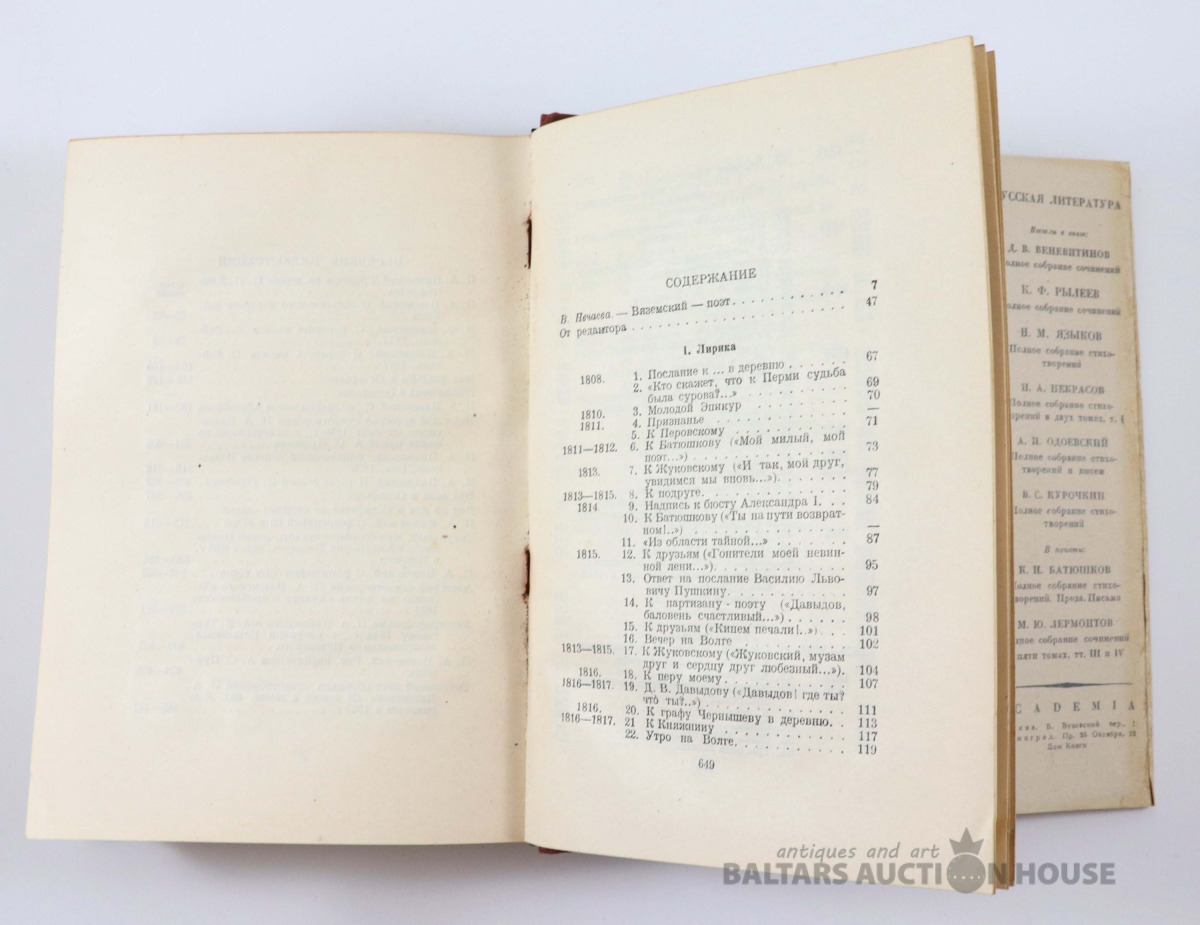 СОДЕРЖАНИЕ
В. Нечаева. — Вяземский — поэт . . . . . . . . . . . 7
От редактора . . . . . . . . . . . . . . . . . . . . 47
I. Лирика
1808. 1. Послание к ... в деревню . . . . . . 67
2. «Кто скажет, что к Перми судьба
была сурова?...» . . . . . . . . . 69
1810. 3. Молодой Эпикур . . . . . . . . . 70
1811. 4. Признанье . . . . . . . . . . . . —
5. К Перовскому . . . . . . . . . . 71
1811—1812. 6. К Батюшкову («Мой милый, мой
поэт...») . . . . . . . . . . . . . 73
1813. 7. К Жуковскому («И так, мой друг,
увидимся мы вновь...») . . . . . . . 77
1813—1815. 8. К подруге . . . . . . . . . . . . 79
1814 9. Надпись к бюсту Александра I. . . . 84
10. К Батюшкову («Ты на пути возврат-
ном!..») . . . . . . . . . . . . . —
11. «Из области тайной...» . . . . . . . 87
1815. 12. К друзьям («Гонители моей невин-
ной лени...») . . . . . . . . . . . 95
13. Ответ на послание Василию Льво-
вичу Пушкину . . . . . . . . . . . 97
14. К партизану-поэту («Давыдов,
баловень счастливый...») . . . . . . 98
15. К друзьям («Кинем печали!..») . . . . 101
16. Вечер на Волге . . . . . . . . . . 102
1813—1815. 17. К Жуковскому («Жуковский, музам
друг и сердцу друг любезный...»). 104
1816. 18. К перу моему . . . . . . . . . . . 107
1816—1817. 19. Д. В. Давыдову («Давыдов! где ты?
что ты?..») . . . . . . . . . . . . 111
1816. 20. К графу Чернышеву в деревню. . . 113
1816—1817. 21 К Княжнину . . . . . . . . . . . 117
22. Утро на Волге . . . . . . . . . . . 119
649
УССКАЯ ЛИТЕРАТУРА
Вышли в свет:
Д. В. ВЕНЕВИТИНОВ
олное собрание сочинений
К. Ф. РЫЛЕЕВ
олное собрание сочинений
Н. М. ЯЗЫКОВ
Полное собрание стихо-
творений
Н. А. НЕКРАСОВ
Полное собрание стихо-
ворений в двух томах, т. I
А. И. ОДОЕВСКИЙ
Полное собрание стихо-
творений и писем
В. С. КУРОЧКИН
Полное собрание стихо-
творений
В печати:
К. Н. БАТЮШКОВ
Полное собрание стихо-
ворений. Проза. Письма
М. Ю. ЛЕРМОНТОВ
лное собрание сочинений
пяти томах, тт. III и IV
CADEMIA
Дом Книги
antiques and art
BALTARS AUCTION HOUSE